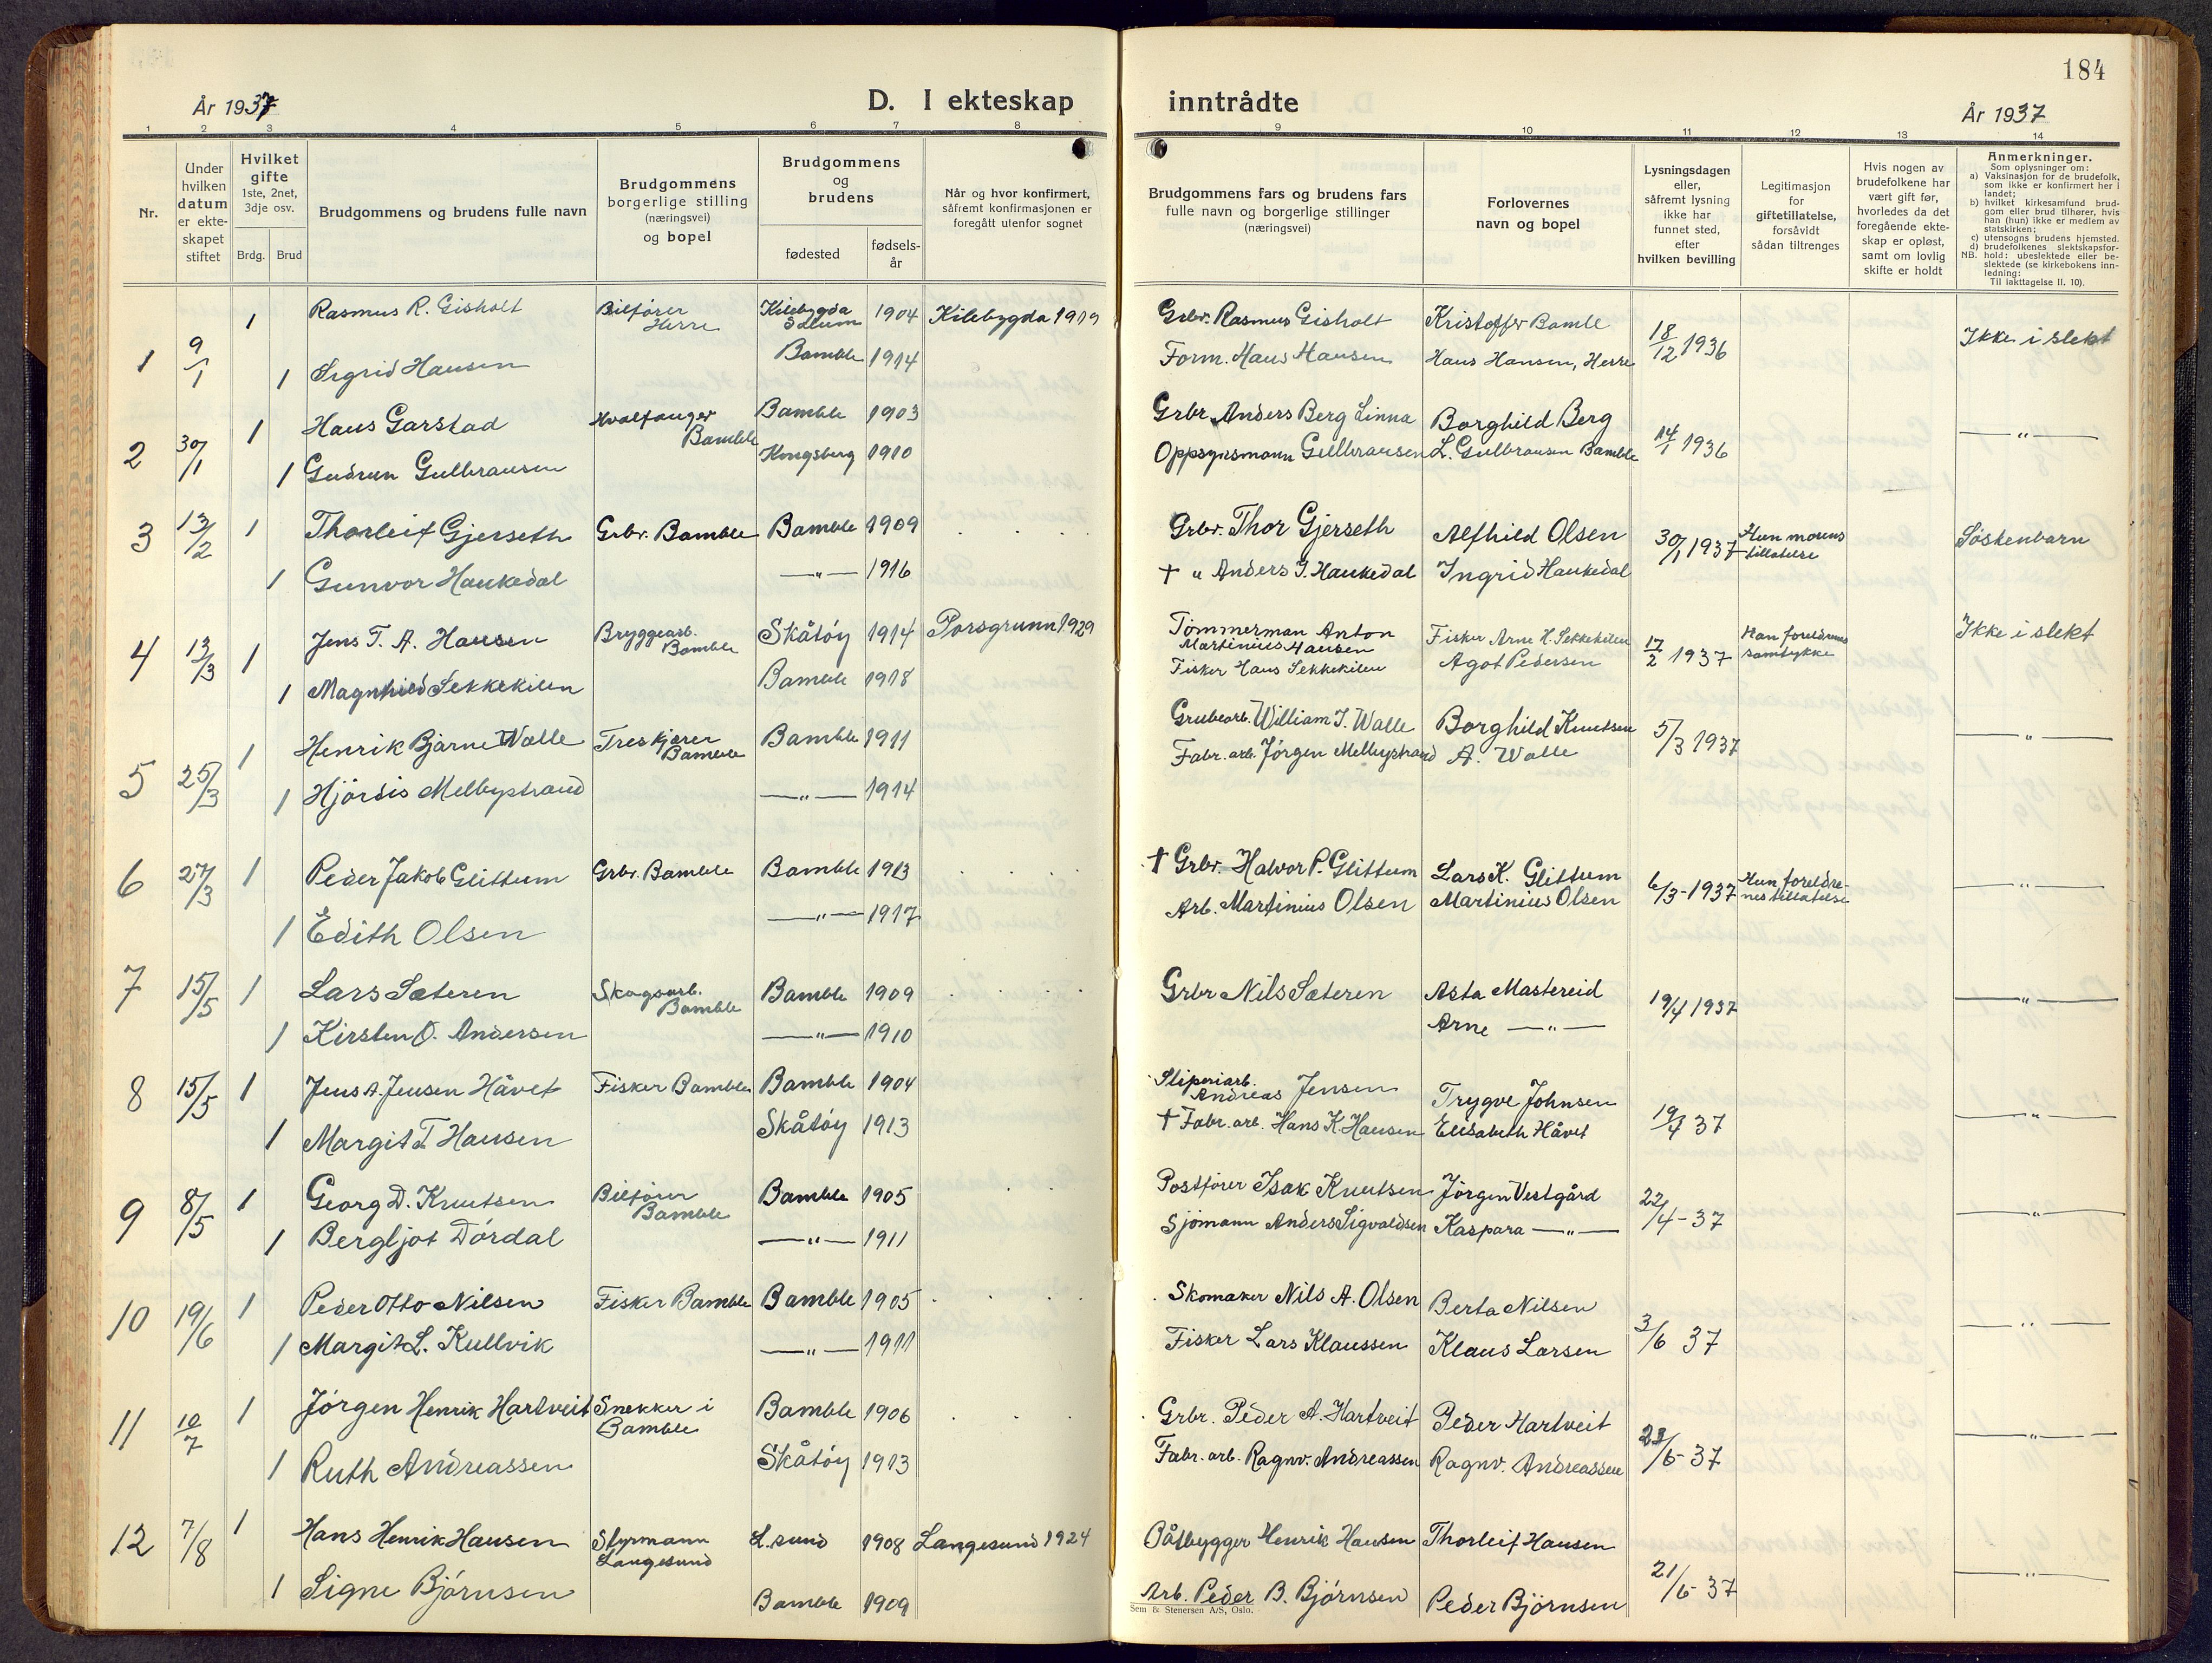 184
År 1937
D. I ekteskap
inntrådte
År 1937
1 2 3 4 5 6 7 8
9 10 11 12 13 14
Nr.
Under hvilken datum er ekte- skapet stiftet
Hvilket gifte 1ste, 2net, 3dje osv.
Brdg. Brud
Brudgommens og brudens fulle navn
Brudgommens borgerlige stilling (næringsvei) og bopel
Brudgommens og brudens
fødested fødsels- år
Når og hvor konfirmert, såfremt konfirmasjonen er foregått utenfor sognet
Brudgommens fars og brudens fars fulle navn og borgerlige stillinger (næringsvei)
Forlovernes navn og bopel
Lysningsdagen eller, såfremt lysning ikke har funnet sted, efter hvilken bevilling
Legitimasjon for giftetillatelse, forsåvidt sådan tiltrenges
Hvis nogen av brudefolkene har vært gift før, hvorledes da det foregående ekte- skap er opløst, samt om lovlig skifte er holdt
Anmerkninger.
Som oplysninger om:
a) Vaksinasjon for de brudefolk, som ikke er konfirmert her i landet;
b) hvilket kirkesamfund brud- gom eller brud tilhører, hvis han (hun) ikke er medlem av statskirken;
c) utensogns brudens hjemsted.
d) brudefolkenes slektskapsfor- hold: ubeslektede eller be- slektede (se kirkebokens inn- ledning:
NB.
Til iakttagelse II. 10).
1 9/1 1 Rasmus R. Gisholt Bilfører Herre Kilebygda Solum 1904 Kilebygda 1919 Grbr. Rasmus Gisholt Kristoffer Bamle 18/12 1936 Ikke i slekt
1 Sigrid Hansen Bamble 1914 Form. Hans Hansen Hans Hansen, Herre
2 30/1 1 Hans Garstad Hvalfanger Bamble Bamble 1903 Grbr. Anders Berg Linna Borghild Berg 14/1 1936 —"—
1 Gudrun Gulbransen Kongsberg 1910 Oppsynsmann Gulbransen L. Gulbransen Bamble
3 13/2 1 Thorleif Gjerseth Grbr. Bamble Bamble 1909 Grbr. Thor Gjerseth Alfhild Olsen 30/1 1937 Hun morens tillatelse Søskenbarn
1 Gunvor Haukedal —"— 1916 † " Anders J. Haukedal Ingrid Haukedal
4 13/3 1 Jens T. A. Hansen Bryggearb. Bamble Skåtøy 1914 Porsgrunn 1929 Tømmerman Anton Martinius Hansen Fisker Arne H. Sekkekilen 17/2 1937 Han foreldrenes samtykke Ikke i slekt
1 Magnhild Sekkekilen Bamble 1918 Fisker Hans Sekkekilen Agot Pedersen
5 25/3 1 Henrik Bjarne Walle Treskjærer Bamble Bamble 1911 Grubearb. William J. Walle Borghild Knutsen 5/3 1937 —"—
1 Hjørdis Melbystrand —"— 1914 Fabr. arb. Jørgen Melbystrand A. Walle
6 27/3 1 Peder Jakob Glittum Grbr. Bamble Bamble 1913 † Grbr. Halvor P. Glittum Lars K. Glittum 6/3-1937 Hun foreldre- nes tillatelse —"—
1 Edith Olsen —"— 1917 Arb. Martinius Olsen Martinius Olsen
7 15/5 1 Lars Sæteren Skogsarb. Bamble Bamble 1909 Grbr Nils Sæteren Asta Mastereid 19/4 1937 —"—
1 Kirsten O. Andersen —"— 1910 Arne —"—
8 15/5 1 Jens A. Jensen Håvet Fisker Bamble Bamble 1904 Sliperiarb. Andreas Jensen Trygve Johnsen 19/4 37 —"—
1 Margit T Hansen Skåtøy 1913 † Fabr. arb. Hans K. Hansen Elisabeth Håvet
9 8/5 1 Georg D. Knutsen Bilfører Bamble Bamble 1905 Postfører Isak Knutsen Jørgen Vestgård 22/4-37 —"—
1 Bergljot Dørdal —"— 1911 Sjømann Anders Sigvaldsen Kaspara —"—
10 19/6 1 Peder Otto Nilsen Fisker Bamble Bamble 1905 Skomaker Nils A. Olsen Berta Nilsen 3/6 37 —"—
1 Margit L. Kullvik —"— 1911 Fisker Lars Klaussen Klaus Larsen
11 10/7 1 Jørgen Henrik Hartveit Snekker i Bamble Bamble 1906 Grbr. Peder A. Hartveit Peder Hartveit 23/6-37 —"—
1 Ruth Andreassen Skåtøy 1913 Fabr. arb. Ragnv. Andreassen Ragnv. Andreassen
12 7/8 1 Hans Henrik Hansen Styrmann Langesund L.sund 1908 Langesund 1924 Båtbygger Henrik Hansen Thorleif Hansen 21/6-37 —"—
1 Signe Bjørnsen Bamble 1909 Arb. Peder B. Bjørnsen Peder Bjørnsen
Sem & Stenersen A/S, Oslo.